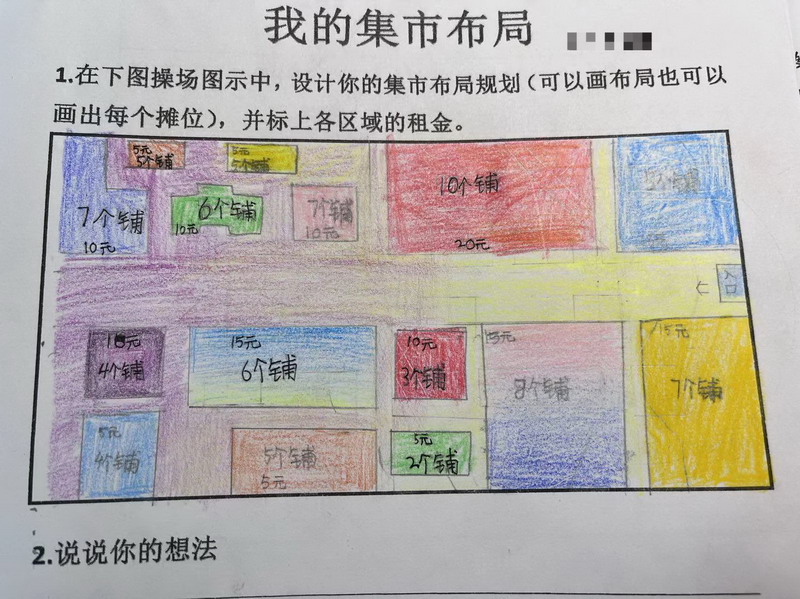 我的集市布局
1.在下图操场图示中，设计你的集市布局规划（可以画布局也可以
画出每个摊位），并标上各区域的租金。
5元
5个铺
5元
5个铺
7个铺
10元
6个铺
10元
7个铺
10元
10个铺
20元
个铺
入口
10元
4个铺
15元
6个铺
10元
3个铺
8个铺
15元
7个铺
5元
4个铺
5个铺
5元
5元
2个铺
2.说说你的想法